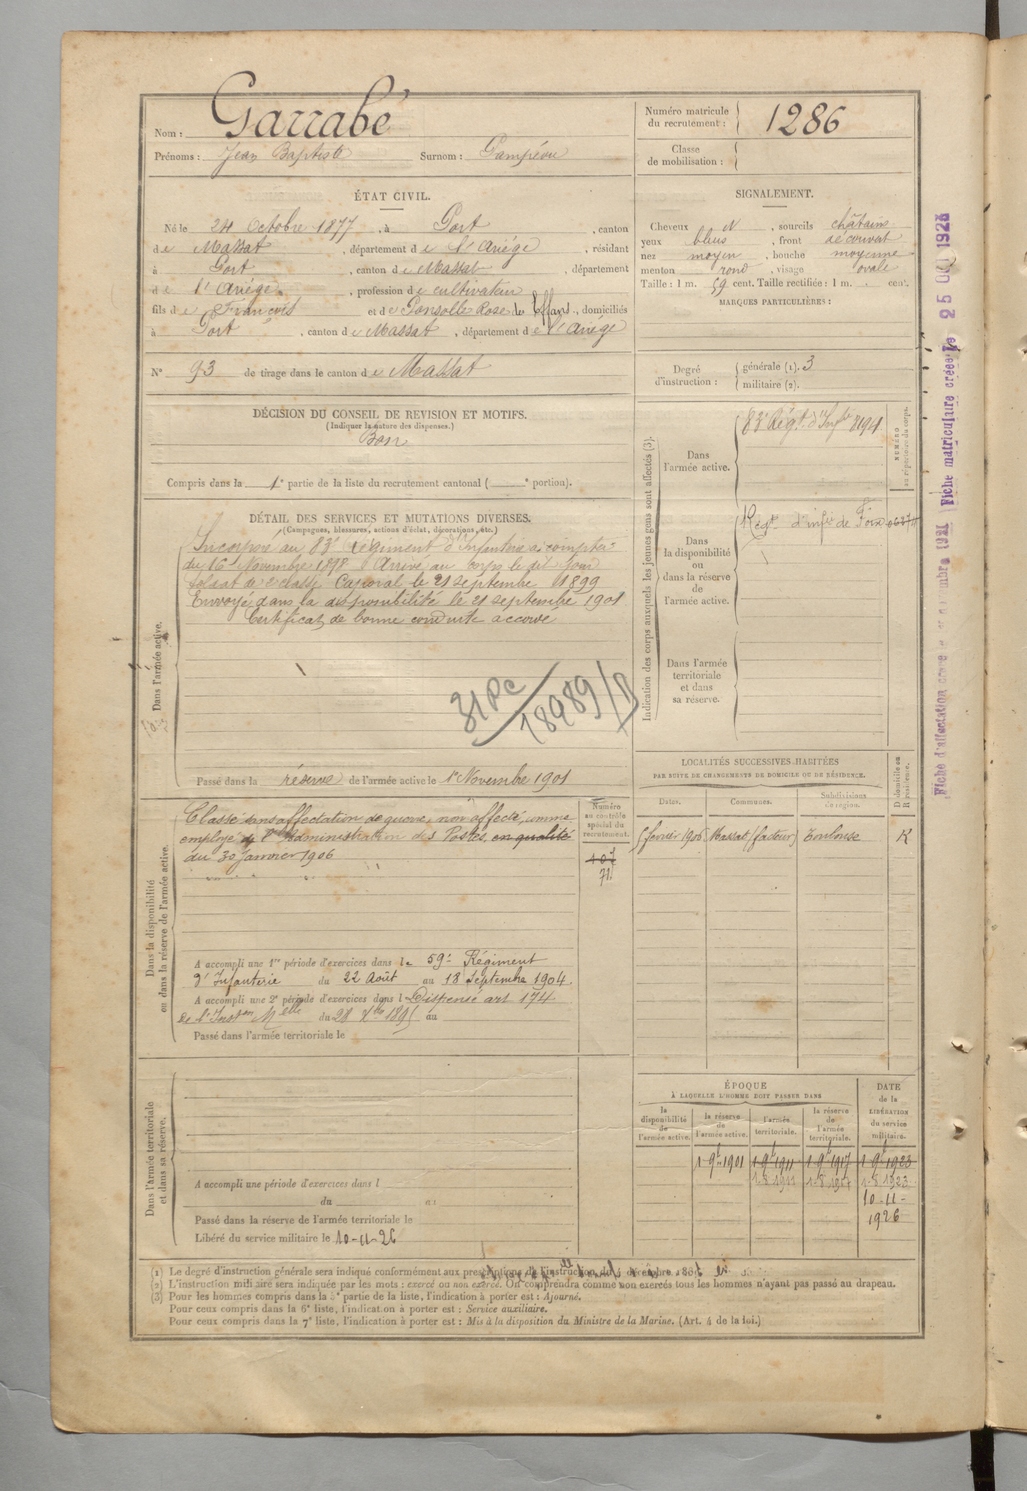 Nom : Garrabé
Prénoms : Jean Baptiste Surnom :
Numéro matricule du recrutement : 1286
Classe de mobilisation :
ÉTAT CIVIL.
Né le 24 Octobre 1877, à Port, canton
de Massat, département de l'Ariège, résidant
à Port, canton de Massat, département
de l'Ariège, profession de cultivateur
fils de François et de Ponsolle Rose, domiciliés
à Port, canton de Massat, département de l'Ariège
N° 93 de tirage dans le canton de Massat
SIGNALEMENT.
Cheveux N, sourcils châtains
yeux bleus, front découvert
nez moyen, bouche moyenne
menton rond, visage ovale
Taille : 1 m. 59 cent. Taille rectifiée : 1 m. cent.
MARQUES PARTICULIÈRES :
Degré d'instruction : générale (1). 3
militaire (2).
DÉCISION DU CONSEIL DE REVISION ET MOTIFS.
(Indiquer la nature des dispenses.)
Bon
Compris dans la 1e partie de la liste du recrutement cantonal ( e portion).
DÉTAIL DES SERVICES ET MUTATIONS DIVERSES.
(Campagnes, blessures, actions d'éclat, décorations, etc.)
Dans l'armée active.
Incorporé au 83e Régiment d'Infanterie à compter
du 16 Novembre 1898 Arrivé au corps le dit jour
soldat de 2e classe Caporal le 21 septembre 1899
Envoyé dans la disponibilité le 21 septembre 1901
Certificat de bonne conduite accordé
31 Pc / 18989/D
Passé dans la réserve de l'armée active le 1er Novembre 1901
Indication des corps auxquels les jeunes gens sont affectés (3).
Dans l'armée active.
83e Régt d'Infie
NUMÉRO au répertoire du corps.
Dans la disponibilité ou dans la réserve de l'armée active.
Régt d'infie de Foix
Dans l'armée territoriale et dans sa réserve.
Dans la disponibilité ou dans la réserve de l'armée active.
Classé sans affectation de guerre, non affecté, comme
employé de l'Administration des Postes, en qualité
du 30 janvier 1906
Numéro au contrôle spécial du recrutement.
107
71
A accompli une 1re période d'exercices dans le 59e Régiment
d'Infanterie du 22 Août au 18 Septembre 1904.
A accompli une 2e période d'exercices dans l Dispensé art 174
de l'Inston Melle du 28 Xbre 1895 au
Passé dans l'armée territoriale le
LOCALITÉS SUCCESSIVES HABITÉES
PAR SUITE DE CHANGEMENTS DE DOMICILE OU DE RÉSIDENCE.
Dates. Communes. Subdivisions de région. D domicile ou R résidence.
5 février 1906 Massat (facteur) Toulouse R
Dans l'armée territoriale et dans sa réserve.
A accompli une période d'exercices dans l
du au
Passé dans la réserve de l'armée territoriale le
Libéré du service militaire le 10-11-26
ÉPOQUE
À LAQUELLE L'HOMME DOIT PASSER DANS
la disponibilité de l'armée active. la réserve de l'armée active. l'armée territoriale. la réserve de l'armée territoriale.
DATE de la LIBÉRATION du service militaire.
1 9bre 1901 1 9bre 1911 1 9bre 1917 1 9bre 1923
1-8 1911 1-8 1917 1-8 1923
10-11-
1926
(1) Le degré d'instruction générale sera indiqué conformément aux prescriptions de l'instruction du
(2) L'instruction militaire sera indiquée par les mots : exercé ou non exercé. On comprendra comme non exercés tous les hommes n'ayant pas passé au drapeau.
(3) Pour les hommes compris dans la 5e partie de la liste, l'indication à porter est : Ajourné.
Pour ceux compris dans la 6e liste, l'indication à porter est : Service auxiliaire.
Pour ceux compris dans la 7e liste, l'indication à porter est : Mis à la disposition du Ministre de la Marine. (Art. 4 de la loi.)
Fiche matriculaire créée le 25
Fiche d'affectation